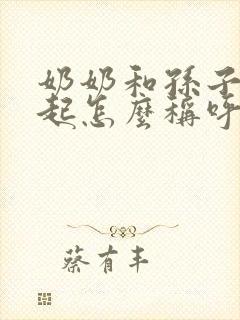 奶奶和孫子
起怎麼稱呼
蔡有丰